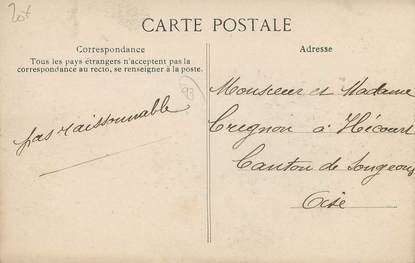 20f
CARTE POSTALE
Correspondance
Tous les pays étrangers n'acceptent pas la
correspondance au recto, se renseigner à la poste.
Adresse
93
pas raissonnable
Monsieur et Madame
Crignon à Hécourt
Canton de Songeons
Oise